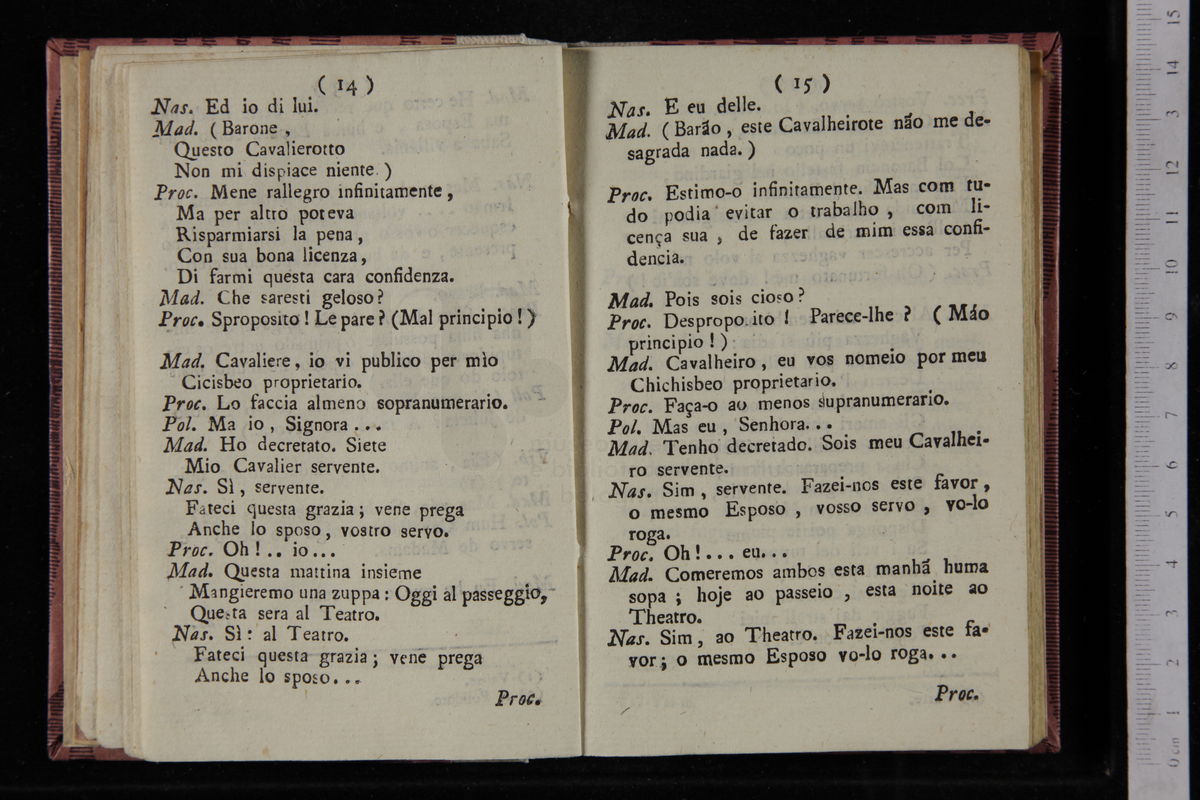 ( 14 )
Nas. Ed io di lui.
Mad. ( Barone ,
Questo Cavalierotto
Non mi dispiace niente. )
Proc. Mene rallegro infinitamente ,
Ma per altro poteva
Risparmiarsi la pena ,
Con sua bona licenza ,
Di farmi questa cara confidenza.
Mad. Che saresti geloso ?
Proc. Sproposito ! Le pare ? (Mal principio ! )
Mad. Cavaliere , io vi publico per mìo
Cicisbeo proprietario.
Proc. Lo faccia almeno sopranumerario.
Pol. Ma io , Signora . . .
Mad. Ho decretato. Siete
Mio Cavalier servente.
Nas. Sì , servente.
Fateci questa grazia ; vene prega
Anche lo sposo, vostro servo.
Proc. Oh ! . . io . . .
Mad. Questa mattina insieme
Mangieremo una zuppa : Oggi al passeggio,
Questa sera al Teatro.
Nas. Sì : al Teatro.
Fateci questa grazia ; vene prega
Anche lo sposo. . .
Proc.
( 15 )
Nas. E eu delle.
Mad. ( Barão , este Cavalheirote não me de-
sagrada nada. )
Proc. Estimo-o infinitamente. Mas com tu-
do podia evitar o trabalho , com li-
cença sua , de fazer de mim essa confi-
dencia.
Mad. Pois sois cioso ?
Proc. Despropo ito ! Parece-lhe ? ( Máo
principio ! )
Mad. Cavalheiro , eu vos nomeio por meu
Chichisbeo proprietario.
Proc. Faça-o ao menos supranumerario.
Pol. Mas eu , Senhora. . .
Mad. Tenho decretado. Sois meu Cavalhei-
ro servente.
Nas. Sim , servente. Fazei-nos este favor ,
o mesmo Esposo , vosso servo , vo-lo
roga.
Proc. Oh ! . . . eu. . .
Mad. Comeremos ambos esta manhã huma
sopa ; hoje ao passeio , esta noite ao
Theatro.
Nas. Sim , ao Theatro. Fazei-nos este fa-
vor ; o mesmo Esposo vo-lo roga. . .
Proc.
0 cm 1 2 3 4 5 6 7 8 9 10 11 12 13 14 15